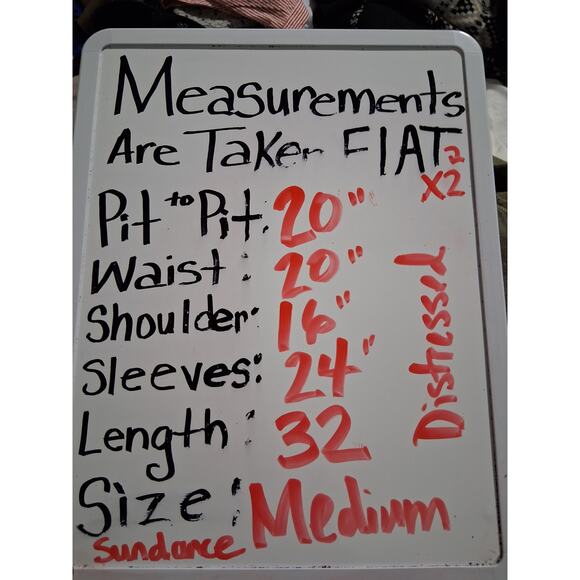 Measurements
Are Taken FlAT
X2
Pit to Pit: 20"
Waist: 20"
Shoulder: 16"
Sleeves: 24"
Length: 32
Size: Medium
Sundance
Distressed